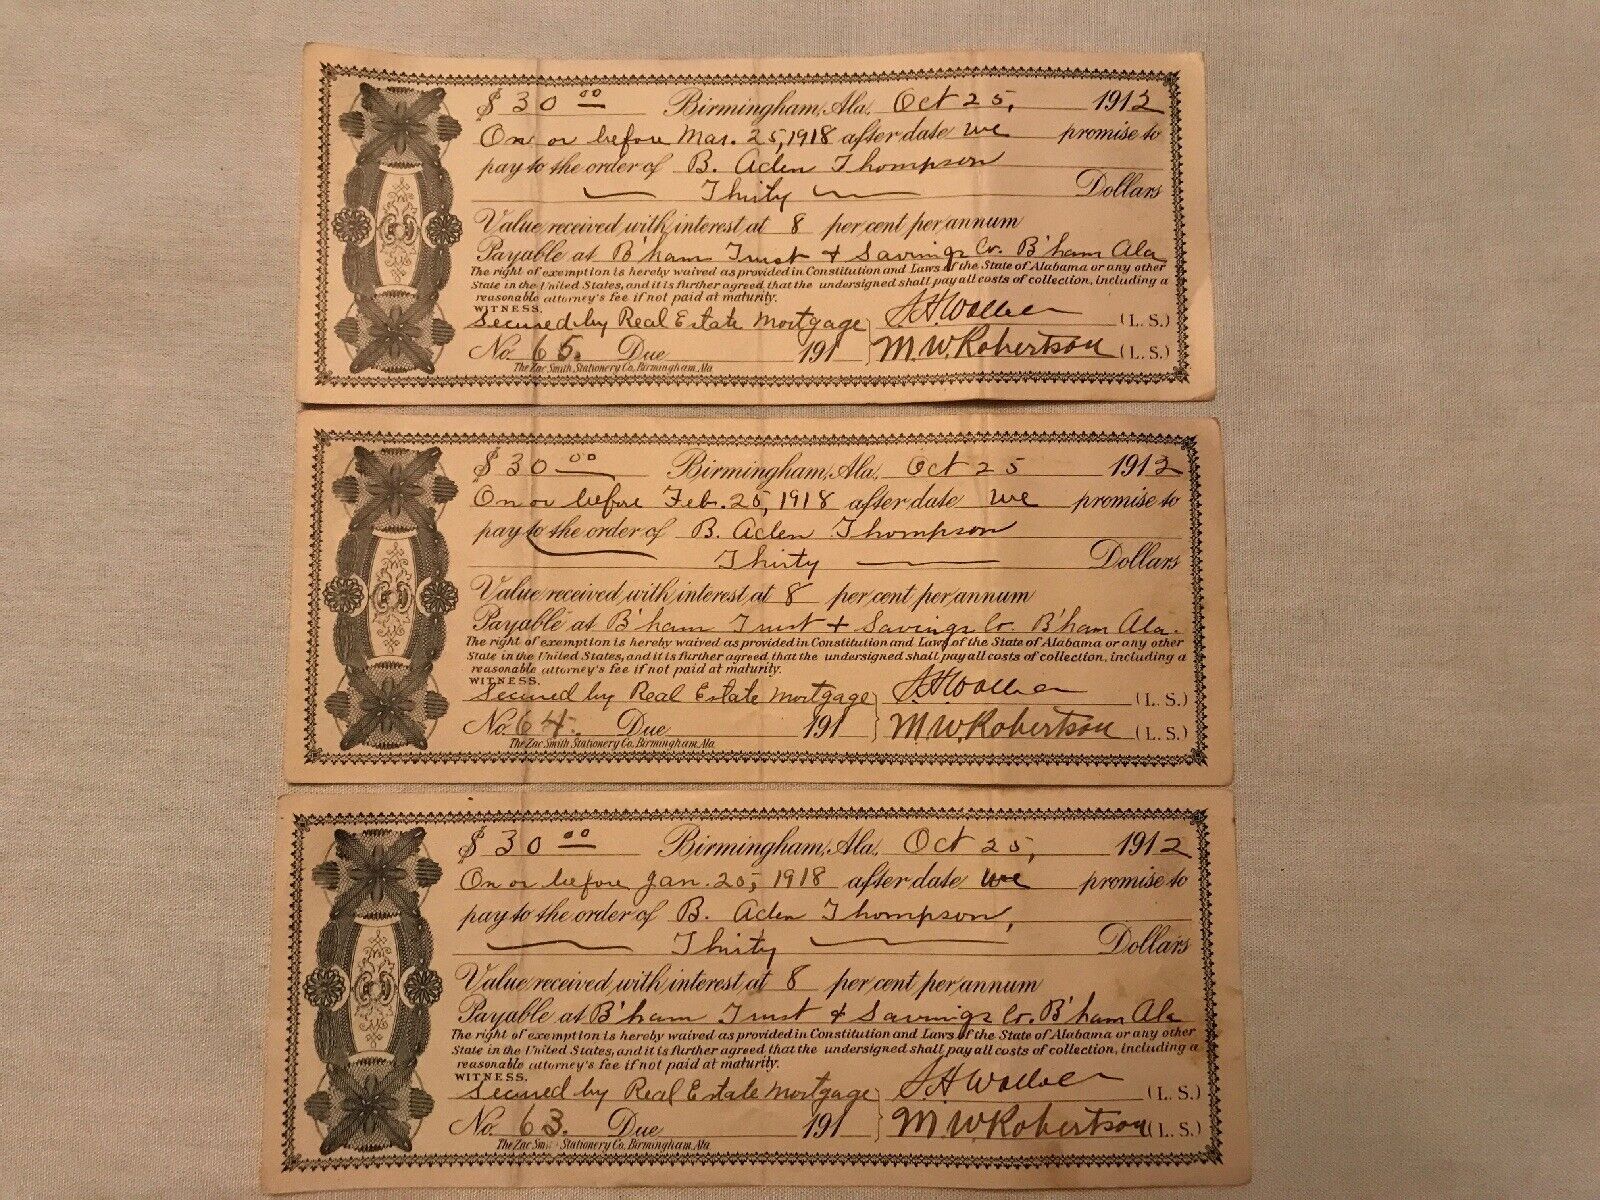 $ 30 00 Birmingham, Ala., Oct 25, 1912
On or before Mar. 25, 1918 after date we promise to
pay to the order of B. Aden Thompson
Thirty Dollars
Value received with interest at 8 per cent per annum
Payable at B'ham Trust & Savings Co. B'ham Ala
The right of exemption is hereby waived as provided in Constitution and Laws of the State of Alabama or any other
State in the United States, and it is further agreed that the undersigned shall pay all costs of collection, including a
reasonable attorney's fee if not paid at maturity.
WITNESS.
Secured by Real Estate Mortgage (L. S.)
No. 65. Due 191 M. W. Robertson (L. S.)
The Zac Smith Stationery Co. Birmingham, Ala
$ 30 00 Birmingham, Ala., Oct 25 1912
On or before Feb. 25, 1918 after date we promise to
pay to the order of B. Aden Thompson
Thirty Dollars
Value received with interest at 8 per cent per annum
Payable at B'ham Trust & Savings Co. B'ham Ala.
The right of exemption is hereby waived as provided in Constitution and Laws of the State of Alabama or any other
State in the United States, and it is further agreed that the undersigned shall pay all costs of collection, including a
reasonable attorney's fee if not paid at maturity.
WITNESS.
Secured by Real Estate Mortgage (L. S.)
No. 64. Due 191 M. W. Robertson (L. S.)
The Zac Smith Stationery Co. Birmingham, Ala
$ 30 00 Birmingham, Ala., Oct 25, 1912
On or before Jan. 25, 1918 after date we promise to
pay to the order of B. Aden Thompson,
Thirty Dollars
Value received with interest at 8 per cent per annum
Payable at B'ham Trust & Savings Co. B'ham Ala
The right of exemption is hereby waived as provided in Constitution and Laws of the State of Alabama or any other
State in the United States, and it is further agreed that the undersigned shall pay all costs of collection, including a
reasonable attorney's fee if not paid at maturity.
WITNESS.
Secured by Real Estate Mortgage (L. S.)
No. 63. Due 191 M. W. Robertson (L. S.)
The Zac Smith Stationery Co. Birmingham, Ala